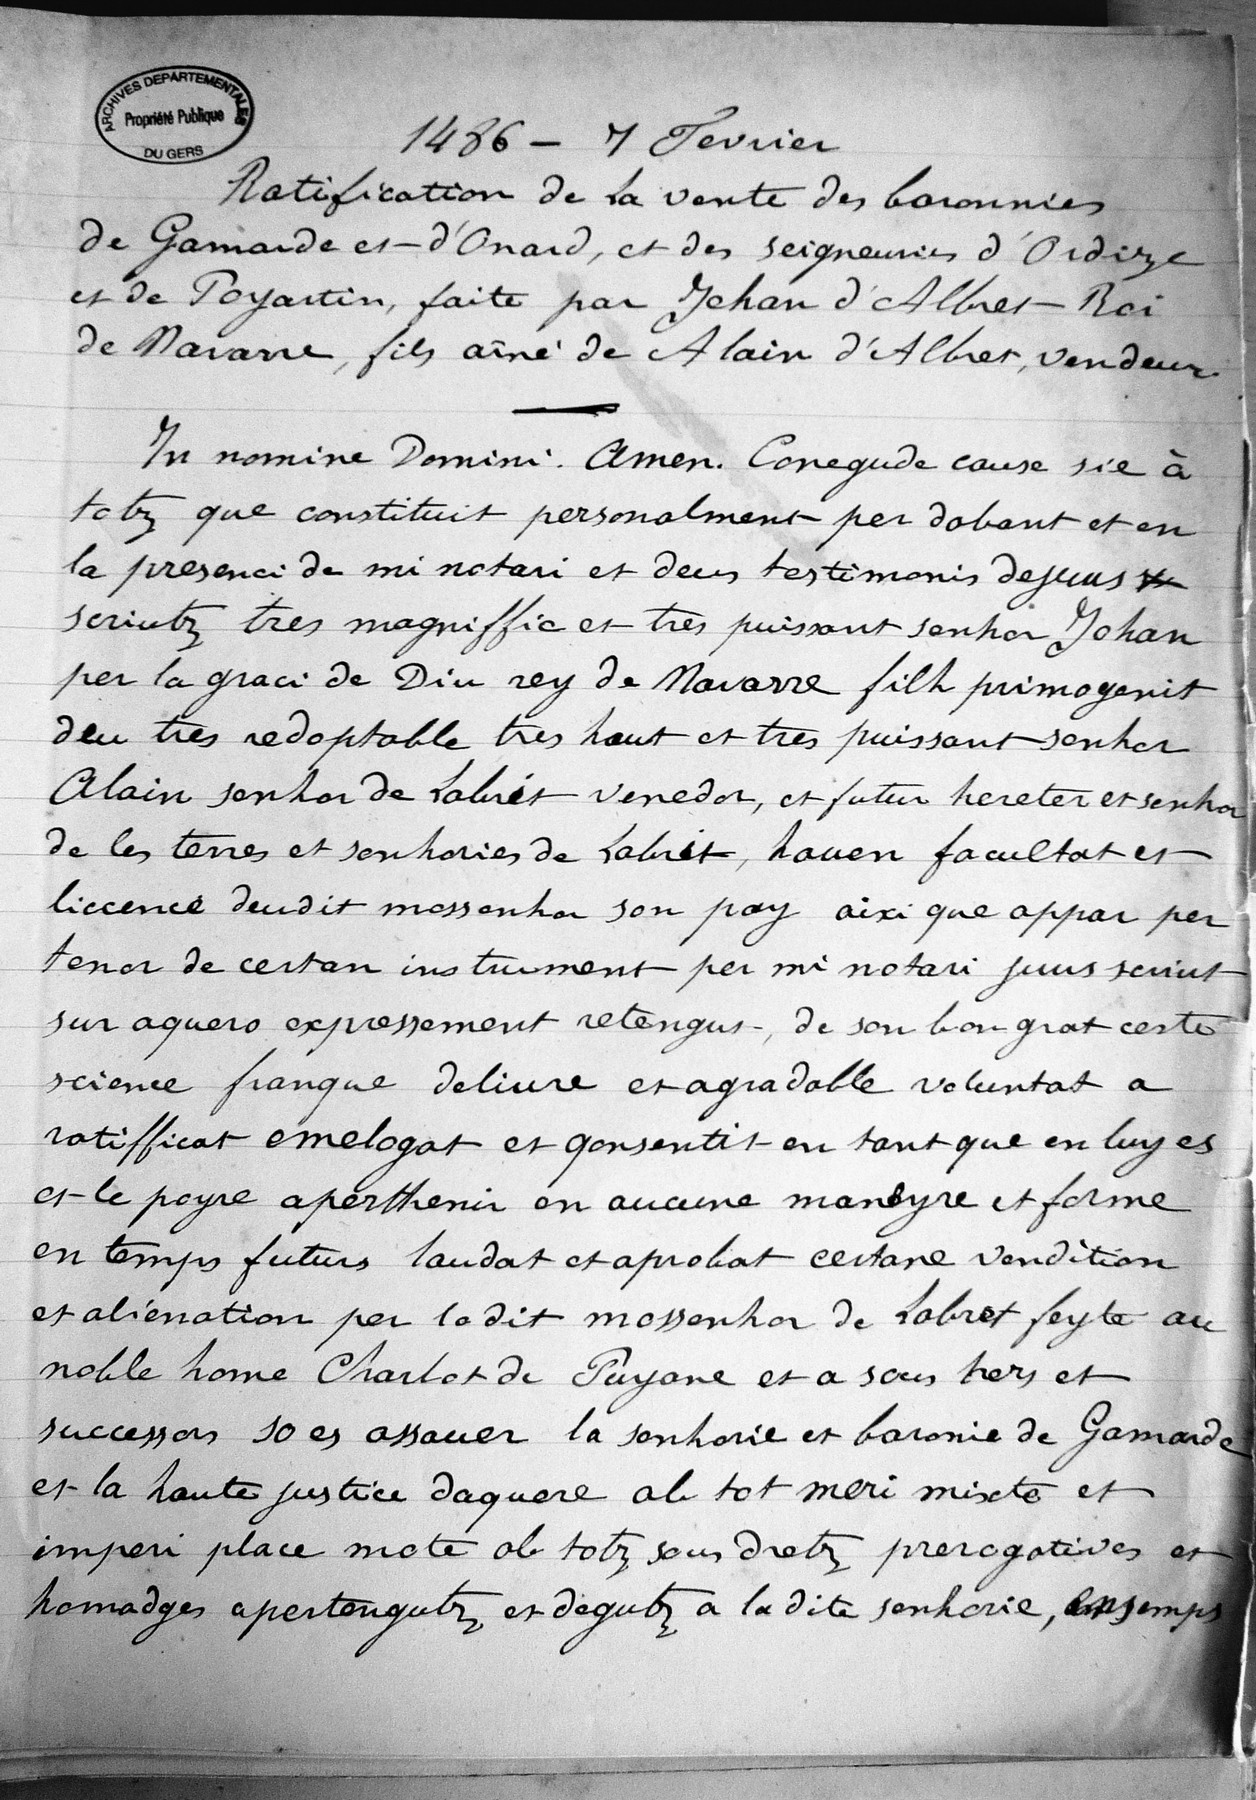 ARCHIVES DEPARTEMENTALES
Propriété Publique
DU GERS
1486 - 7 Fevrier
Ratification de la vente des baronnies
de Gamarde et d'Onard, et des seigneuries d'Ordize
et de Poyartin, faite par Jehan d'Albret Roi
de Navarre, fils aîné de Alain d'Albret, vendeur
In nomine Domini. Amen. Conegude cause sie à
totz que constituit personalment per dabant et en
la presenci de mi notari et deus testimonis dejuus
scriutz tres magniffic et tres puissant senhor Johan
per la graci de Diu rey de Navarre filh primogenit
deu tres redoptable tres haut et tres puissant senhor
Alain senhor de Labrit venedor, et futur hereter et senhor
de les terres et senhories de Labrit, hauen facultat et
liccence deudit mossenhor son pay aixi que appar per
tenor de certan instrument per mi notari juus scriut
sur aquero expressement retengut, de son bon grat certe
science franque deliure et agradable voluntat a
ratifficat emelogat et qonsentit en tant que en luy es
et le poyre aperthenir en aucune maneyre et forme
en temps futurs laudat et aprobat certane vendition
et aliénation per lodit mossenhor de Labret feyte au
noble home Charlot de Puyane et a sous hers et
successors so es assauer la senhorie et baronie de Gamarde
et la haute justice daquere ab tot meri mixte et
imperi place mote ab totz sous dretz prerogatives et
homadges apertengutz et degutz a ladite senhorie, ensemps